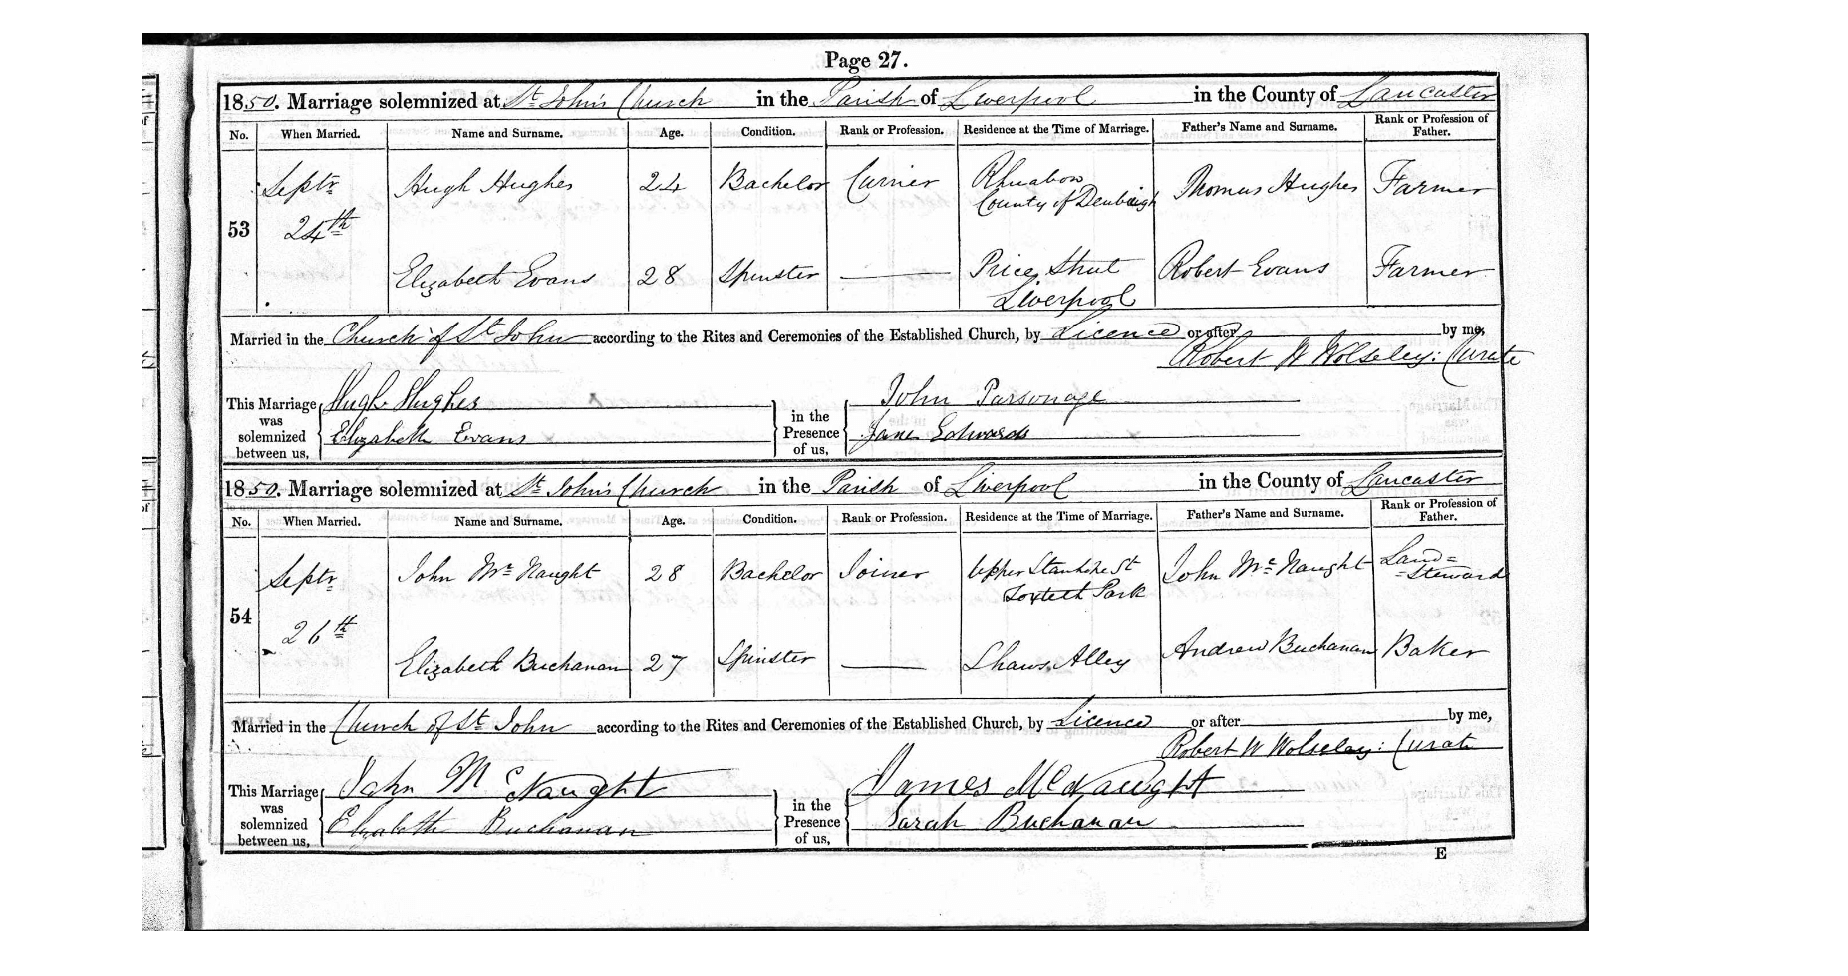 Page 27.
1850. Marriage solemnized at St John's Church in the Parish of Liverpool in the County of Lancaster
No. When Married. Name and Surname. Age. Condition. Rank or Profession. Residence at the Time of Marriage. Father's Name and Surname. Rank or Profession of Father.
53 Septr 24th Hugh Hughes 24 Bachelor Currier Rhuabon County of Denbigh Thomas Hughes Farmer
Elizabeth Evans 28 Spinster Price Street Liverpool Robert Evans Farmer
Married in the Church of St John according to the Rites and Ceremonies of the Established Church, by Licence or after by me,
Robert W Wolseley: Curate
This Marriage was solemnized between us, Hugh Hughes in the Presence of us, John Parsonage
Elizabeth Evans Jane Edwards
1850. Marriage solemnized at St John's Church in the Parish of Liverpool in the County of Lancaster
No. When Married. Name and Surname. Age. Condition. Rank or Profession. Residence at the Time of Marriage. Father's Name and Surname. Rank or Profession of Father.
54 Septr 26th John Mc Naught 28 Bachelor Joiner Upper Stanhope St Toxteth Park John Mc Naught Land=Steward
Elizabeth Buchanan 27 Spinster Shaws Alley Andrew Buchanan Baker
Married in the Church of St John according to the Rites and Ceremonies of the Established Church, by Licence or after by me,
Robert W Wolseley: Curate
This Marriage was solemnized between us, John Mc Naught in the Presence of us, James McNaught
Elizabeth Buchanan Sarah Buchanan
E